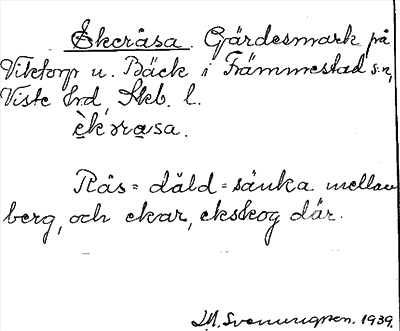 Ekeråsa. Gärdesmark på
Viktorp u. Bäck i Främmestad sn,
Viste hrd, Skb. l.
èkråsa.
Rås = däld = sänka mellan
berg, och ekar, ekskog där.
1939.